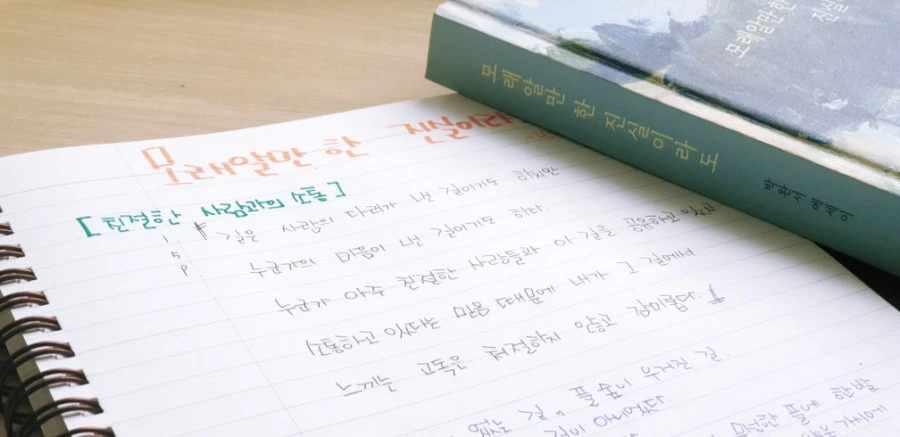 모래알만한
진실
모래알만 한 진실이라도
박완서 에세이
모래알만 한 진실이라
[친절한 사람과의 소통]
길은 사람의 다리가 낸 길이기도 하지만
누군가의 마음이 낸 길이기도 하다
누군가 아주 친절한 사람들과 이 길을 공유하고 있고
소통하고 있다는 믿음 때문에 내가 그 길에서
느끼는 고독은 처절하지 않고 감미롭다.
없는 길. 풀숲이 우거진 길.
길이 아니었다
풀에 한발